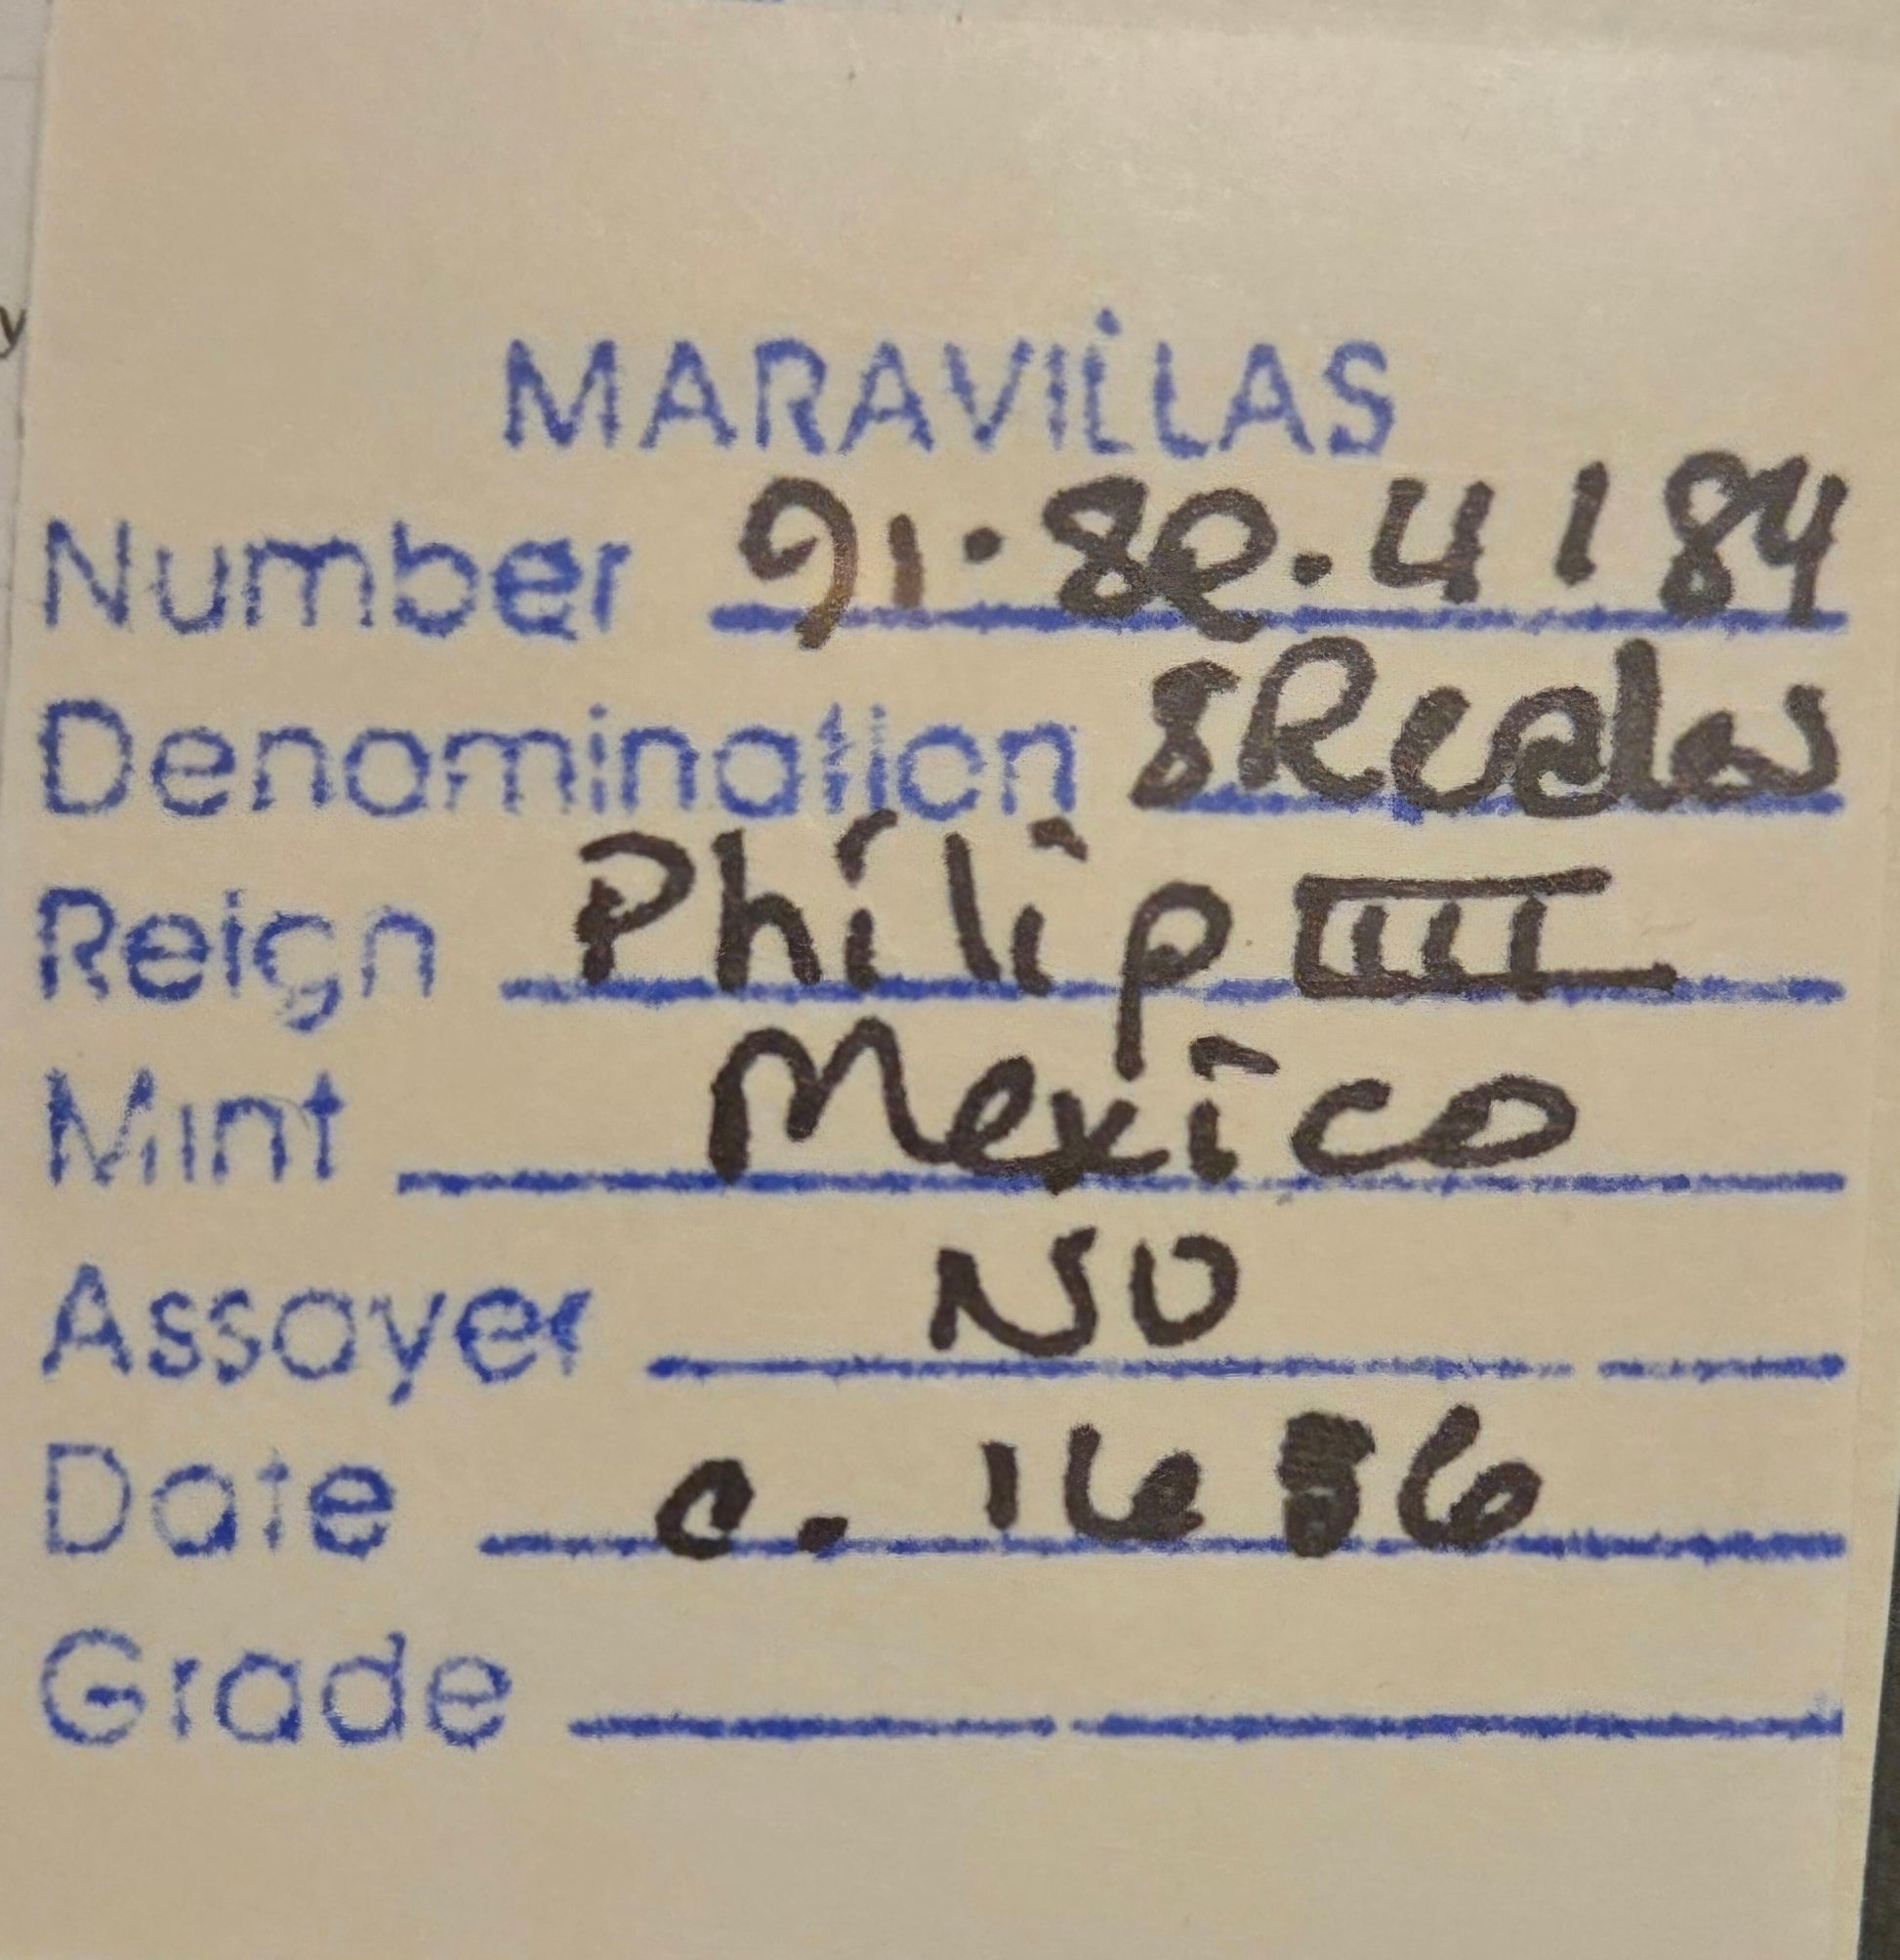 y
MARAVILLAS
Number 91.8R.4184
Denomination 8 Reales
Reign Philip IIII
Mint Mexico
Assayer NO
Date c. 1656
Grade